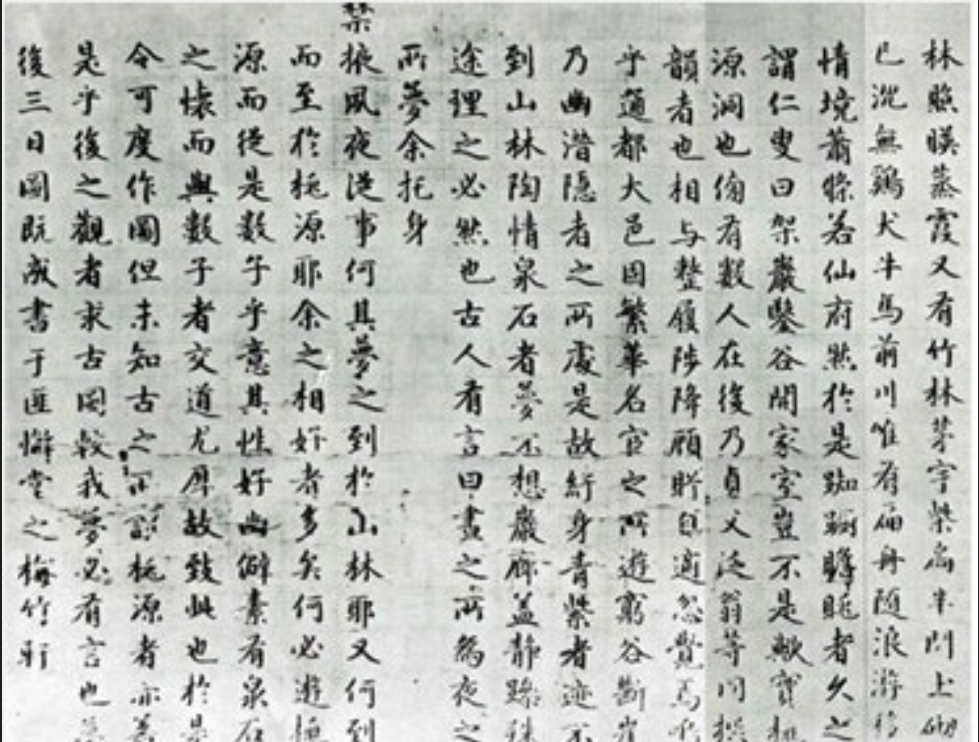 林照暎蒸霞又有竹林茅宇柴扃半開土砌
已沈無鷄犬牛馬前川唯有扁舟随浪游移
情境蕭條若仙府然於是踟躕瞻眺者久之
謂仁叟曰架巖鑿谷開家室豈不是歟實桃
源洞也傍有數人在後乃貞父泛翁等同撰
韻者也相与整履陟降顧眄自適忽覺焉
乎通都大邑固繁華名宦之所遊窮谷斷崖
乃幽潜隱者之所處是故紆身青紫者迹不
到山林陶情泉石者夢不想巖廊盖静躁殊
途理之必然也古人有言曰晝之所為夜之
所夢余托身
禁掖夙夜從事何其夢之到於山林耶又何到
而至於桃源耶余之相好者多矣何必遊桃
源而從是數子乎意其性好幽僻素有泉石
之懷而與數子者交道尤厚故致此也於是
令可度作圖但未知古之所謂桃源者亦若
是乎後之觀者求古圖較我夢必有言也
後三日圖既成書于匪懈堂之梅竹軒